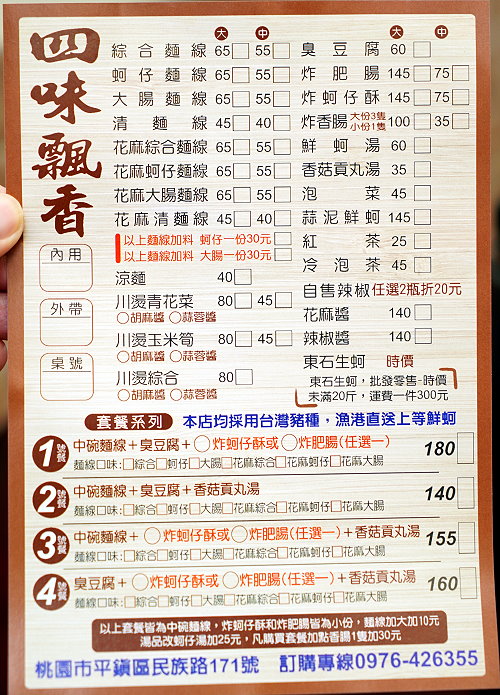 四味飄香
內用
外帶
桌號
大 中
綜合麵線 65 55
蚵仔麵線 65 55
大腸麵線 65 55
清麵線 45 40
花麻綜合麵線 65 55
花麻蚵仔麵線 65 55
花麻大腸麵線 65 55
花麻清麵線 45 40
以上麵線加料 蚵仔一份30元
以上麵線加料 大腸一份30元
涼麵 40
川燙青花菜 80 45
胡麻醬 蒜蓉醬
川燙玉米筍 80 45
胡麻醬 蒜蓉醬
川燙綜合 80
胡麻醬 蒜蓉醬
大 中
臭豆腐 60
炸肥腸 145 75
炸蚵仔酥 145 75
炸香腸 大份3隻 小份1隻 100 35
鮮蚵湯 60
香菇貢丸湯 35
泡菜 45
蒜泥鮮蚵 145
紅茶 25
冷泡茶 45
自售辣椒 任選2瓶折20元
花麻醬 140
辣椒醬 140
東石生蚵 時價
東石生蚵，批發零售-時價
未滿20斤，運費一件300元
套餐系列 本店均採用台灣豬種，漁港直送上等鮮蚵
1號餐 中碗麵線+臭豆腐+○炸蚵仔酥或○炸肥腸(任選一) 180
麵線口味:□綜合□蚵仔□大腸□花麻綜合□花麻蚵仔□花麻大腸
2號餐 中碗麵線+臭豆腐+香菇貢丸湯 140
麵線口味:□綜合□蚵仔□大腸□花麻綜合□花麻蚵仔□花麻大腸
3號餐 中碗麵線+○炸蚵仔酥或○炸肥腸(任選一)+香菇貢丸湯 155
麵線口味:□綜合□蚵仔□大腸□花麻綜合□花麻蚵仔□花麻大腸
4號餐 臭豆腐+○炸蚵仔酥或○炸肥腸(任選一)+香菇貢丸湯 160
麵線口味:□綜合□蚵仔□大腸□花麻綜合□花麻蚵仔□花麻大腸
以上套餐皆為中碗麵線，炸蚵仔酥和炸肥腸皆為小份，麵線加大加10元
湯品改蚵仔湯加25元，凡購買套餐加點香腸1隻加30元
桃園市平鎮區民族路171號 訂購專線0976-426355